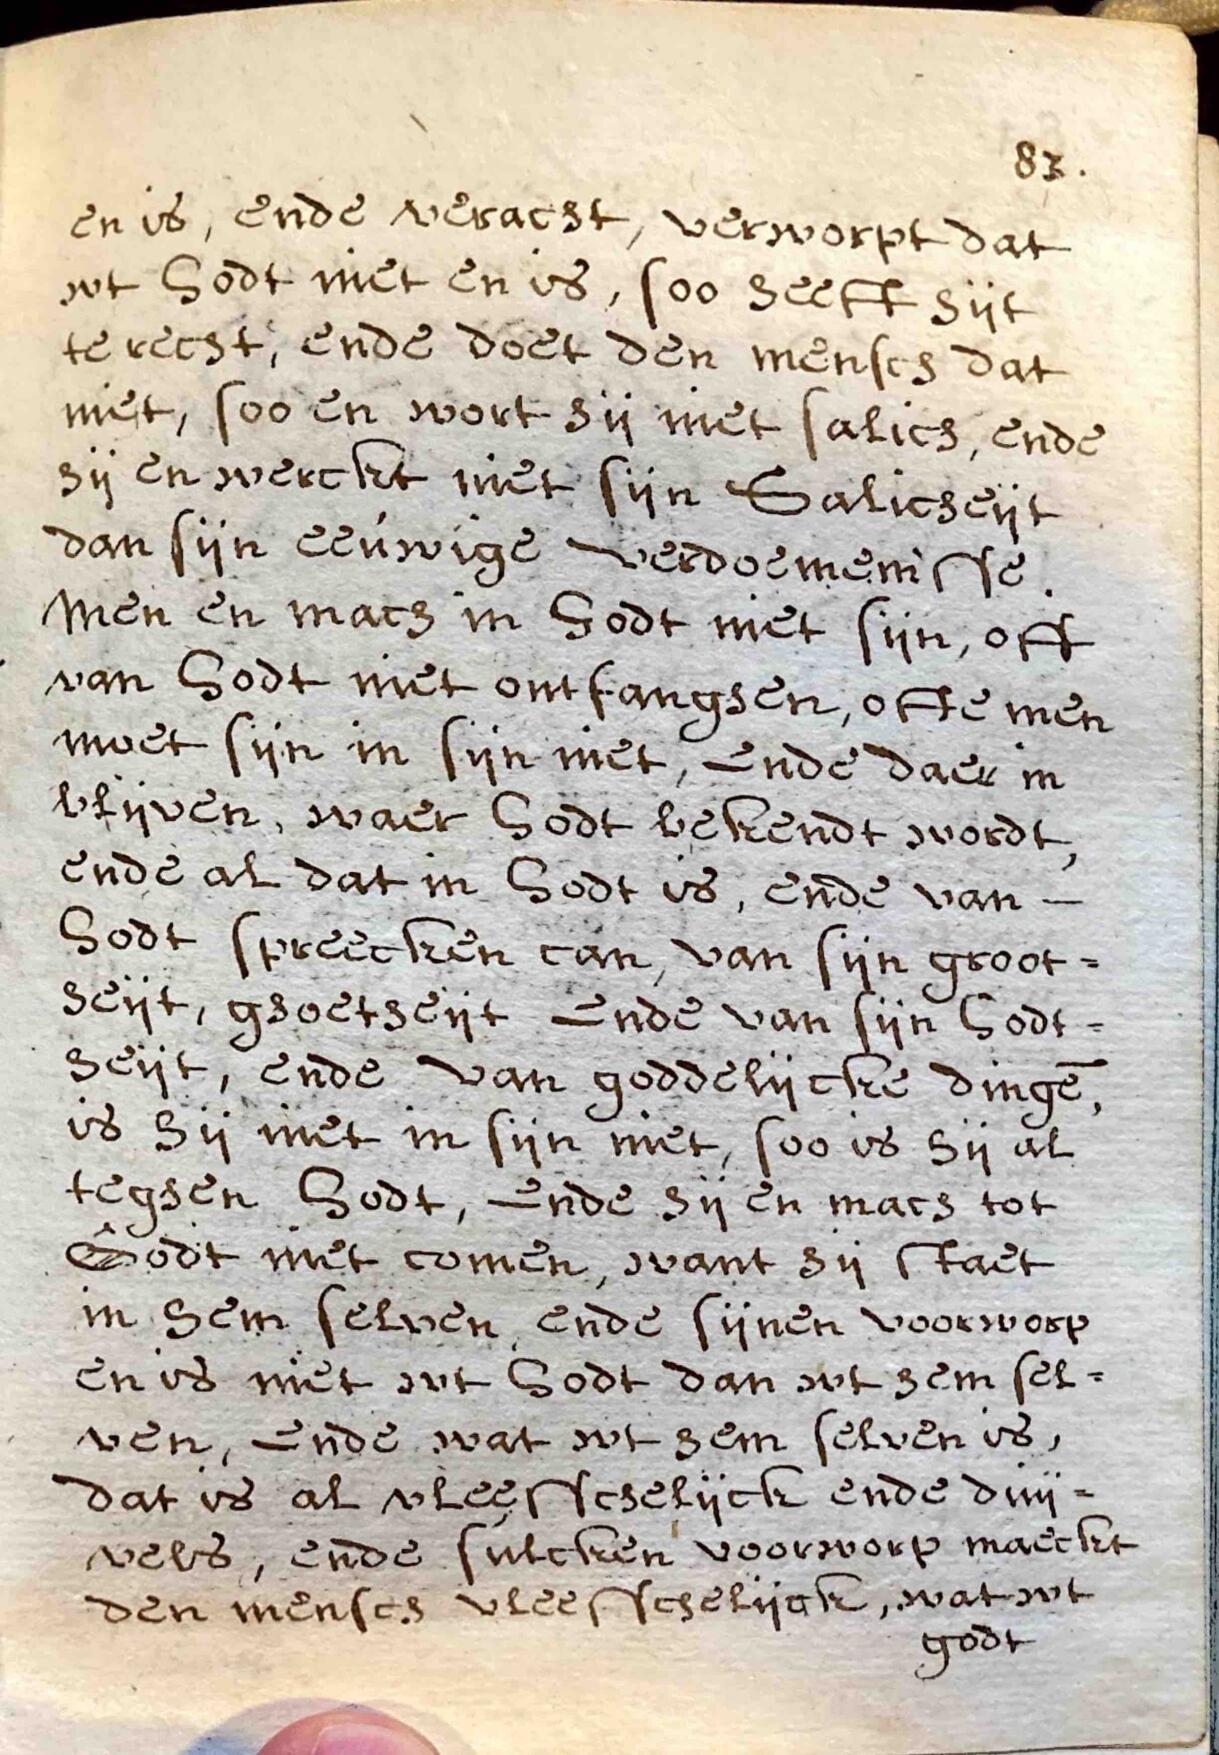 83.
en is, ende veracht, verworpt dat
wt Godt niet en is, soo heeft hijt
te recht, ende doet den mensch dat
niet, soo en wort hij niet salich, ende
hij en werckt niet sijn Salicheijt
dan sijn eeúwige verdoemenisse.
Men en mach in Godt niet sijn, oft
van Godt niet ontfanghen, ofte men
moet sijn in sijn niet, Ende daer in
blijven, waer Godt bekendt wordt,
ende al dat in Godt is, ende van —
Godt spreecken can, van sijn groot=
heijt, ghoetheijt Ende van sijn Godt=
heijt, ende van goddelijcke dingē,
is hij niet in sijn niet, soo is hij al
teghen Godt, Ende hij en mach tot
Godt niet comen, want hij staet
in hem selven, ende sijnen voorworp
en is niet wt Godt dan wt hem sel=
ven, Ende wat wt hem selven is,
dat is al vleesschelijck ende duij=
vels, ende sulcken voorworp maeckt
den mensch vleesschelijck, wat wt
godt